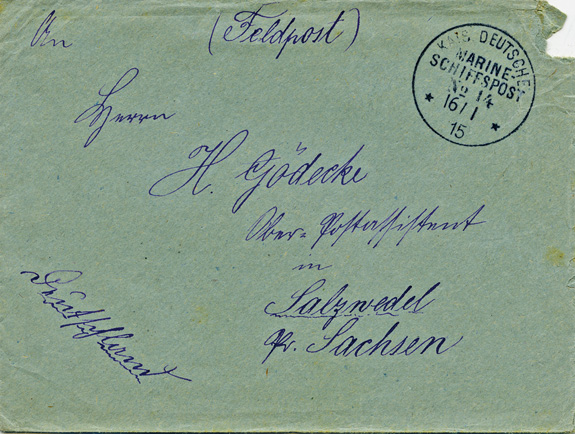 An (Feldpost)
KAIS. DEUTSCHE
MARINE-
SCHIFFSPOST
No 14
* 16/1 *
15
Herrn
H. Gödecke
Ober-Postassistent
in
Salzwedel
Pr. Sachsen
Deutschland